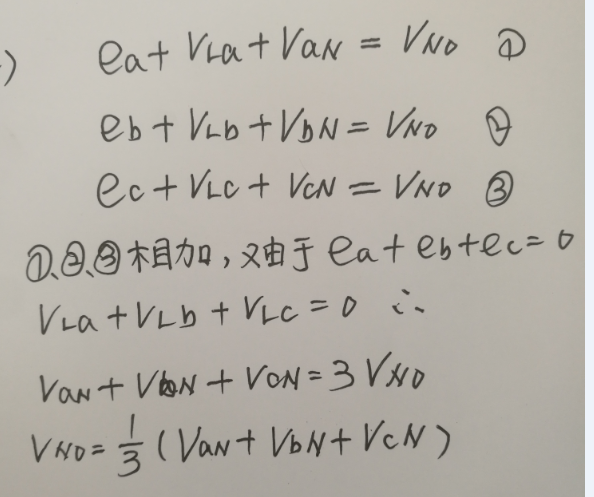 ) ea + VLa + VaN = VNO ①
eb + VLb + VbN = VNO ②
ec + VLC + VCN = VNO ③
①、②、③相加，又由于 ea + eb + ec = 0
VLa + VLb + VLC = 0 ∴
VaN + VbN + VCN = 3 VNO
VNO = 1/3 ( VaN + VbN + VCN )